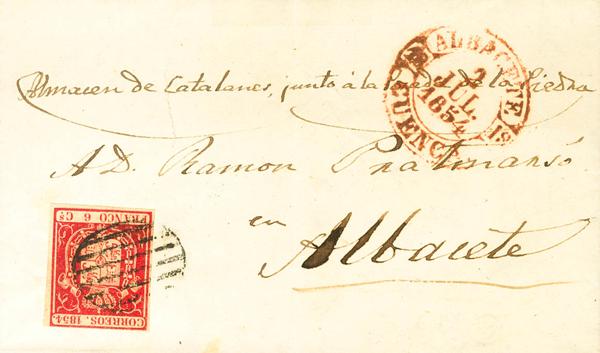 Almacen de Catalanes, junto á la de la Piedra
ALBACETE
2
JUL.
1854
CUENCA
A D. Ramon
en
Albacete
FRANCO 6 Cs
CORREOS. 1854.